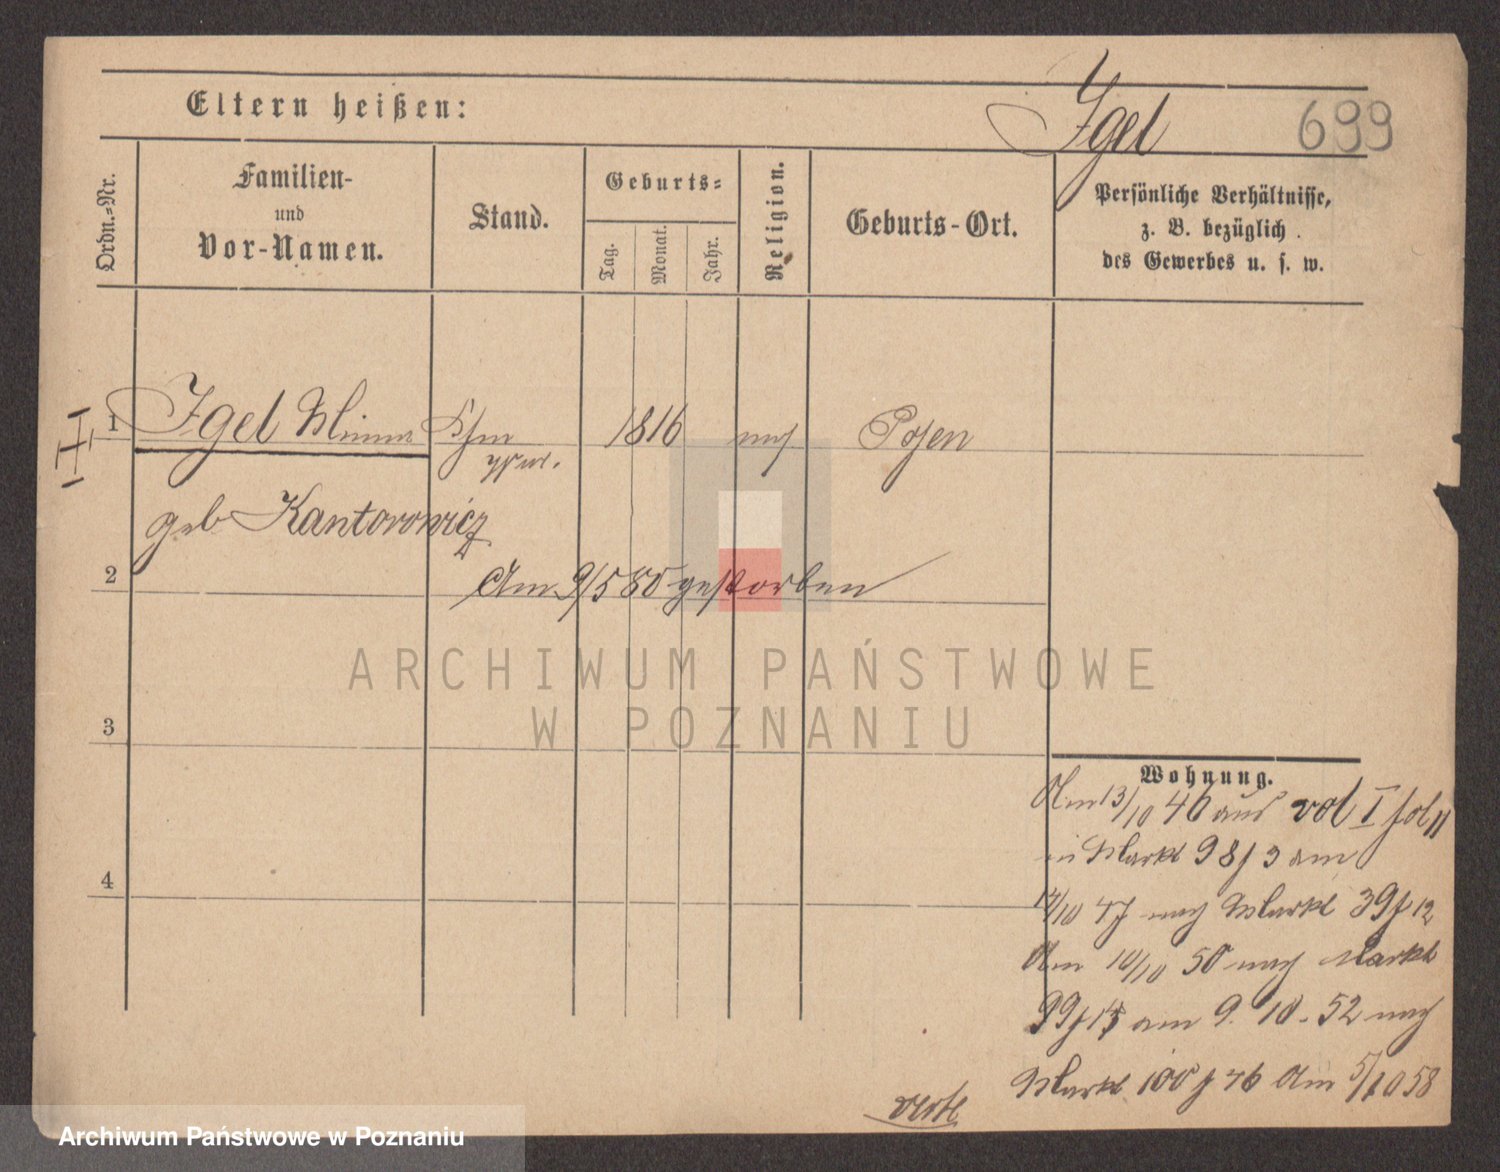 Eltern heißen:
Igel
699
Ordn.=Nr.
Familien-
und
Vor-Namen.
Stand.
Geburts=
Tag.
Monat.
Jahr.
Religion.
Geburts-Ort.
Persönliche Verhältnisse,
z. B. bezüglich
des Gewerbes u. s. w.
1
Igel Minna
1816
Posen
geb Kantorowicz
2
Am 9/5 80 gestorben
ARCHIWUM PAŃSTWOWE
W POZNANIU
3
Wohnung.
Am 13/10 46 aus vol I fol 11
in Markt 98 f 3 am
4
/10 47 nach Markt 39 f 12
Am 10/10 50 nach Markt
99 f 15 am 9. 10. 52 nach
Markt 100 f 76 Am 5/10 58
verte
Archiwum Państwowe w Poznaniu